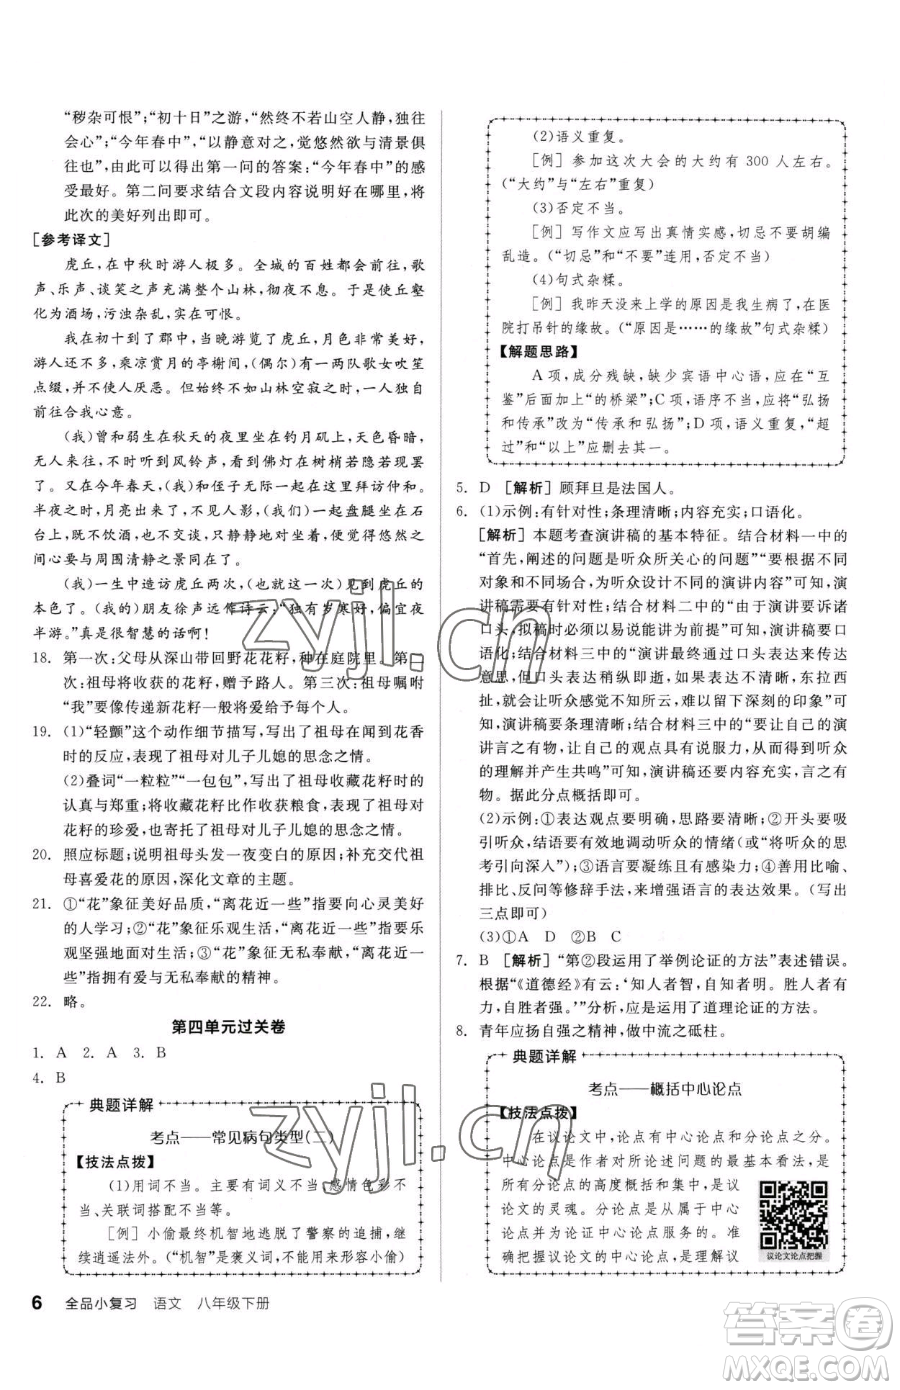 “秽杂可恨”；“初十日”之游，“然终不若山空人静，独往
会心”；“今年春中”，“以静意对之，觉悠然欲与清景俱
往”，由此可以得出第一问的答案：“今年春中”的感
受最好。第二问要求结合文段内容说明好在哪里，将
此次的美好列出即可。
[参考译文]
虎丘，在中秋时游人极多。全城的百姓都前往，歌
声、乐声、谈笑之声充满整个山林，彻夜不息。于是使丘壑
化为酒场，污浊杂乱，实在可恨。
我在初十到了郡中，当晚游览了虎丘，月色非常美好，
游人还不多，乘凉赏月的亭榭间，（偶尔）有一两队歌女吹笙
点缀，并不使人厌恶。但始终不如山林空寂之时，一个人独
往符合我心意。
（我）曾和弱生在秋天的夜里坐在钓月矶上，天色昏暗，
没有人来往，不时听到风铃声，看到佛灯在树梢若隐若现罢
了。又在今年春天，（我）和侄子无际一起在这里拜访仲和。
半夜月亮出来了，没有人，（我们）一起站在石台上，盘腿坐在石
台上，既不饮酒，也不交谈，只静静地对着这月景，觉得悠
然地要与周围清静之景同在了。
（我）一生中造访虎丘才两次，（仅两次）见到了虎丘的
本色了。（我的）朋友徐声远作诗云：“独有岁寒好，偏宜夜
半游。”真是很智慧的话啊！
18. 第一次：父母从深山带回野花花籽，种在庭院里。第二
次：祖母将收获的花籽，赠予路人。第三次：祖母嘱咐
“我”要像传递新花籽一般将爱给予每个人。
19. (1)“轻颤”这个动作细节描写，写出了祖母在闻到花香
时的反应，表达了祖母对儿子儿媳的思念之情。
(2)叠词“一粒粒”“一包包”，写出了祖母收藏花籽时的
认真与郑重；将收藏花籽与收获粮食，表现了祖母对
花籽的珍爱，也寄托了祖母对儿子儿媳的思念之情。
20. 照应标题；说明祖母头发一夜变白的原因；补充交代祖
母喜爱花的原因，深化文章的主题。
21. ①“花”象征美好品质，“离花近一些”指要向心灵美好
的人学习；②“花”象征乐观生活，“离花近一些”指要乐
观坚强地面对生活；③“花”象征无私奉献，“离花近一
些”指拥有爱与无私奉献的精神。
22. 略。
第四单元过关卷
1. A 2. A 3. B
4. B
典题详解
考点——常见病句类型(二)
【技法点拨】
(1)用词不当。主要有词义不当、感情色彩不
当、关联词搭配不当等。
[例] 小偷最终机智地逃脱了警察的追捕，继
续逍遥法外。(“机智”是褒义词，不能用来形容小偷)
(2)语义重复。
[例] 参加这次大会的大约有 300 人左右。
(“大约”与“左右”重复)
(3)否定不当。
[例] 写作文应写出真情实感，切忌不要胡编
乱造。(“切忌”和“不要”连用，否定不当)
(4)句式杂糅。
[例] 我昨天没来上学的原因是我生病了，在医
院打吊针的缘故。(“原因是……的缘故”句式杂糅)
【解题思路】
A 项，成分残缺，缺少宾语中心语，应在“互
鉴”后面加上“的桥梁”；C 项，语序不当，应将“弘扬
和传承”改为“传承和弘扬”；D 项，语义重复，“超
过”和“以上”应删去其一。
5. D [解析] 顾拜旦是法国人。
6. (1)示例：有针对性；条理清晰；内容充实；口语化。
[解析] 本题考查演讲稿的基本特征。结合材料一中的
“首先，阐述的问题是听众所关心的问题”“要根据不同
对象和不同层次的听众，设计不同的演讲内容”可知，演
讲稿需要有针对性；结合材料二中的“由于演讲要诉诸
口头，拟稿时必须以易说能讲为前提”可知，演讲稿要口
语化；结合材料三中的“演讲最终通过口头表达来传情
达意，如果在表达时稍纵即逝，如果思路混乱，东拉西
扯，就会让听众感觉不知所云，难以留下深刻的印象”可
知，演讲稿要条理清晰；结合材料三中的“要让自己的演
讲言之有物，让自己的观点具有说服力，进而得到听众
的理解并产生共鸣”可知，演讲稿还要内容充实，言之有
据。据此分点概括即可。
(2)示例：①表达观点要明确，思路要清晰；②开头要吸
引听众，结语要有效地调动听众的情绪(或引发听众的思
考引向深入”)；③语言要凝练且有感染力；④善用比喻、
排比、反问等修辞手法，增强语言的表达效果。(写出
三点即可)
(3)①A D ②B C
7. B [解析] “第②段运用了举例论证的方法”表述错误。
根据“《道德经》有云：‘知人者智，自知者明。胜人者有
力，自胜者强。’”分析，应是运用了道理论证的方法。
8. 青年应扬自强之精神，做中流之砥柱。
典题详解
考点——概括中心论点
【技法点拨】
在议论文中，论点有中心论点和分论点之分。
中心论点是作者对所论述问题的最基本看法，是
作者所提出的观点的高度概括和集中体现，是议
论文的灵魂。分论点是从属于中心论点，
并为论证中心论点服务的。能够准
确把握议论文的中心论点，是阅读
议论文论点把握
6 全品小复习 语文 八年级下册
zyjl.cn
zyjl.cn
答案圈
MXQE.COM